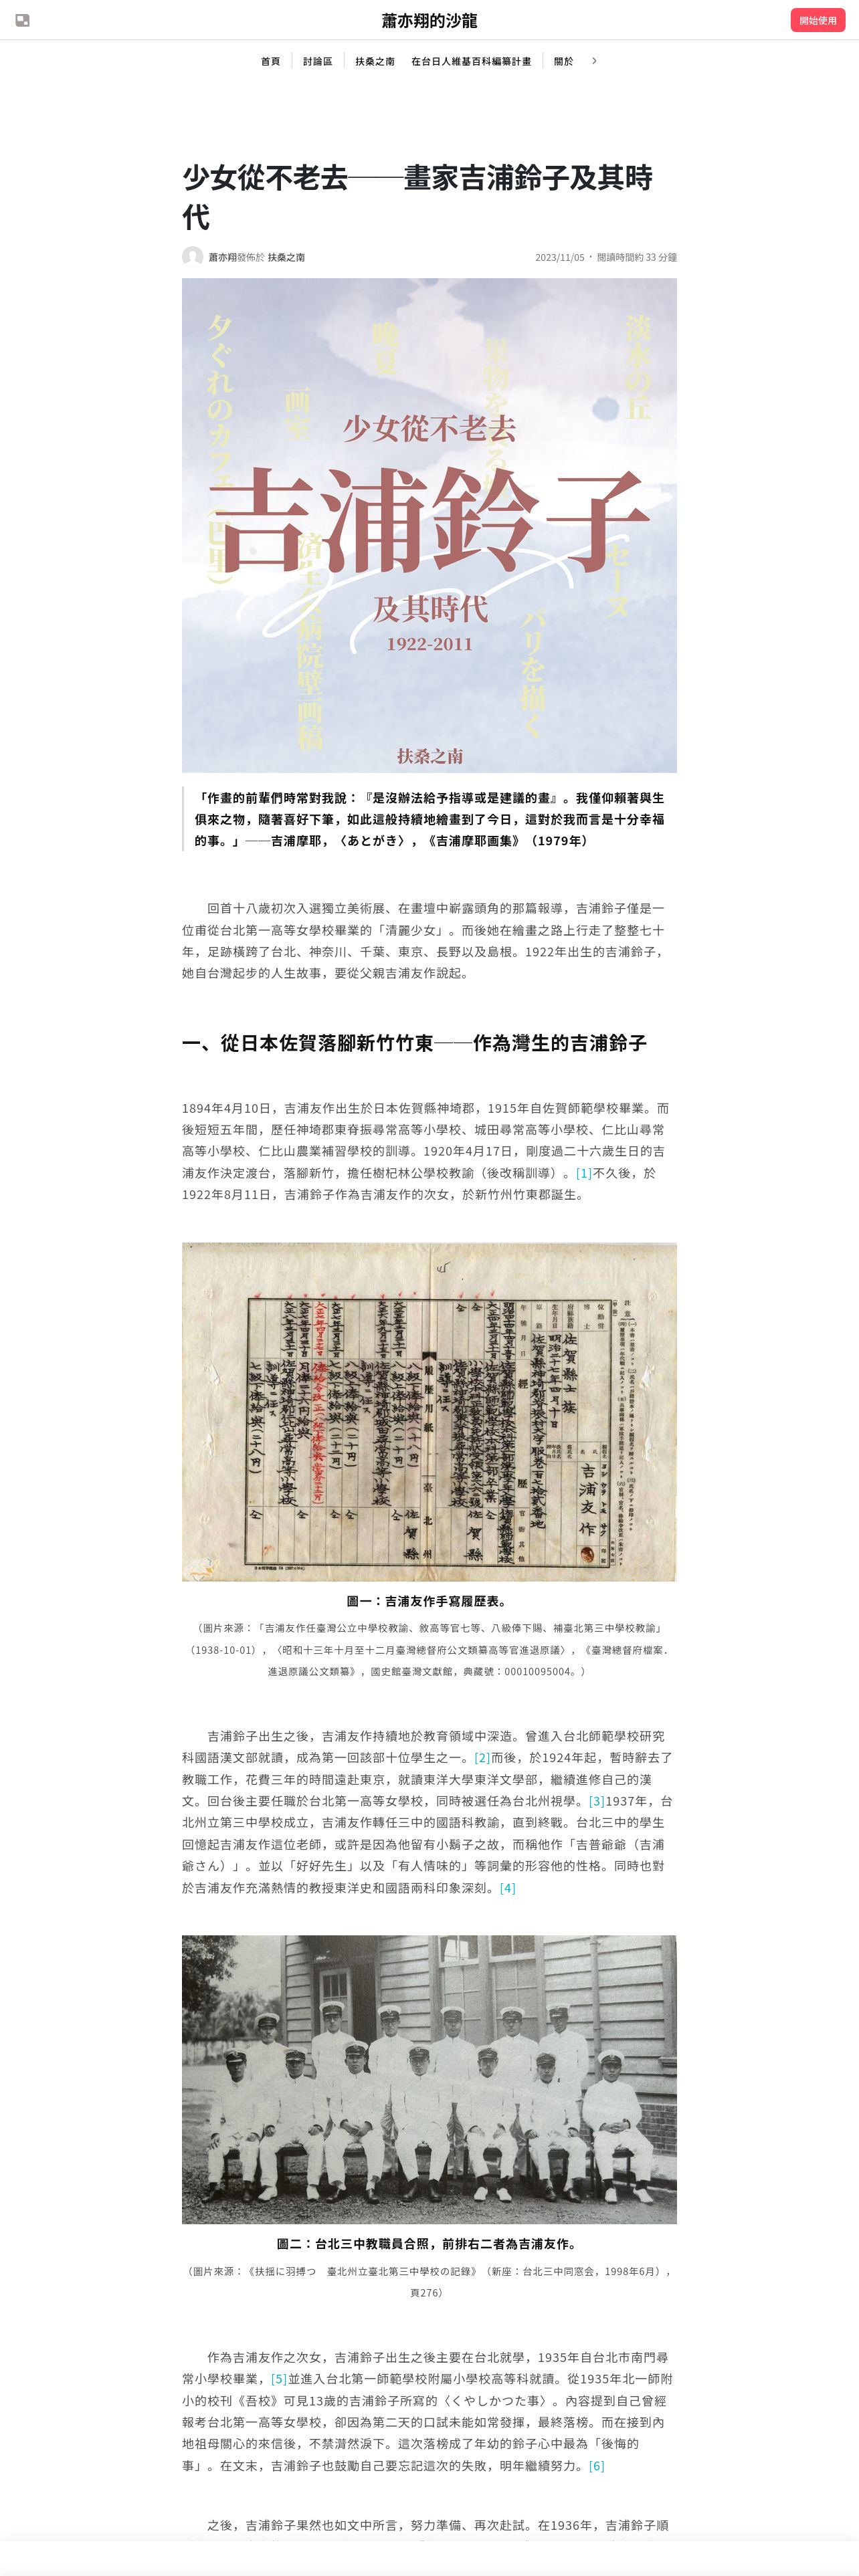 蕭亦翔的沙龍
開始使用
首頁
討論區
扶桑之南
在台日人維基百科編纂計畫
關於
少女從不老去──畫家吉浦鈴子及其時
代
蕭亦翔發佈於 扶桑之南
2023/11/05・閱讀時間約 33 分鐘
淡水の丘
晩夏
画室
夕ぐれのカフェ(巴里)
済生会病院壁画稿
セーヌ
パリを描く
少女從不老去
吉浦鈴子
及其時代
1922-2011
扶桑之南
「作畫的前輩們時常對我說：『是沒辦法給予指導或是建議的畫』。我僅仰賴著與生
俱來之物，隨著喜好下筆，如此這般持續地繪畫到了今日，這對於我而言是十分幸福
的事。」──吉浦摩耶，〈あとがき〉，《吉浦摩耶画集》（1979年）
回首十八歲初次入選獨立美術展、在畫壇中嶄露頭角的那篇報導，吉浦鈴子僅是一
位甫從台北第一高等女學校畢業的「清麗少女」。而後她在繪畫之路上行走了整整七十
年，足跡橫跨了台北、神奈川、千葉、東京、長野以及島根。1922年出生的吉浦鈴子，
她自台灣起步的人生故事，要從父親吉浦友作說起。
一、從日本佐賀落腳新竹竹東──作為灣生的吉浦鈴子
1894年4月10日，吉浦友作出生於日本佐賀縣神埼郡，1915年自佐賀師範學校畢業。而
後短短五年間，歷任神埼郡東脊振尋常高等小學校、城田尋常高等小學校、仁比山尋常
高等小學校、仁比山農業補習學校的訓導。1920年4月17日，剛度過二十六歲生日的吉
浦友作決定渡台，落腳新竹，擔任樹杞林公學校教諭（後改稱訓導）。[1]不久後，於
1922年8月11日，吉浦鈴子作為吉浦友作的次女，於新竹州竹東郡誕生。
履歷用紙
臺北州
吉浦友作
佐賀縣士族
圖一：吉浦友作手寫履歷表。
（圖片來源：「吉浦友作任臺灣公立中學校教諭、敘高等官七等、八級俸下賜、補臺北第三中學校教諭」
（1938-10-01），〈昭和十三年十月至十二月臺灣總督府公文類纂高等官進退原議〉，《臺灣總督府檔案．
進退原議公文類纂》，國史館臺灣文獻館，典藏號：00010095004。）
吉浦鈴子出生之後，吉浦友作持續地於教育領域中深造。曾進入台北師範學校研究
科國語漢文部就讀，成為第一回該部十位學生之一。[2]而後，於1924年起，暫時辭去了
教職工作，花費三年的時間遠赴東京，就讀東洋大學東洋文學部，繼續進修自己的漢
文。回台後主要任職於台北第一高等女學校，同時被選任為台北州視學。[3]1937年，台
北州立第三中學校成立，吉浦友作轉任三中的國語科教諭，直到終戰。台北三中的學生
回憶起吉浦友作這位老師，或許是因為他留有小鬍子之故，而稱他作「吉普爺爺（吉浦
爺さん）」。並以「好好先生」以及「有人情味的」等詞彙的形容他的性格。同時也對
於吉浦友作充滿熱情的教授東洋史和國語兩科印象深刻。[4]
圖二：台北三中教職員合照，前排右二者為吉浦友作。
（圖片來源：《扶揺に羽搏つ　臺北州立臺北第三中學校の記錄》（新座：台北三中同窓会，1998年6月），
頁276）
作為吉浦友作之次女，吉浦鈴子出生之後主要在台北就學，1935年自台北市南門尋
常小學校畢業，[5]並進入台北第一師範學校附屬小學校高等科就讀。從1935年北一師附
小的校刊《吾校》可見13歲的吉浦鈴子所寫的〈くやしかつた事〉。內容提到自己曾經
報考台北第一高等女學校，卻因為第二天的口試未能如常發揮，最終落榜。而在接到內
地祖母關心的來信後，不禁潸然淚下。這次落榜成了年幼的鈴子心中最為「後悔的
事」。在文末，吉浦鈴子也鼓勵自己要忘記這次的失敗，明年繼續努力。[6]
之後，吉浦鈴子果然也如文中所言，努力準備、再次赴試。在1936年，吉浦鈴子順